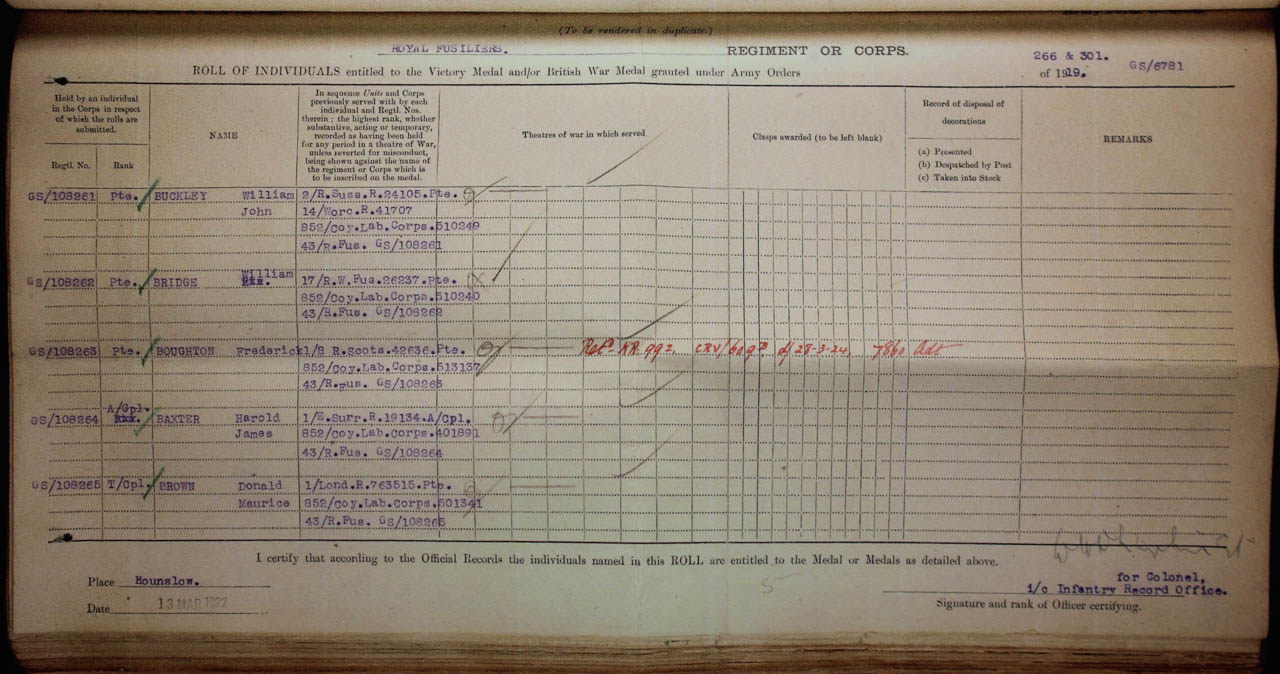 (To be rendered in duplicate.)
ROYAL FUSILIERS. REGIMENT OR CORPS.
ROLL OF INDIVIDUALS entitled to the Victory Medal and/or British War Medal granted under Army Orders 266 & 301. of 1919. GS/6781
Held by an individual
in the Corps in respect
of which the rolls are
submitted.
Regtl. No. Rank
NAME
In sequence Units and Corps
previously served with by each
individual and Regtl. Nos.
therein ; the highest rank, whether
substantive, acting or temporary,
recorded as having been held
for any period in a theatre of War,
unless reverted for misconduct,
being shown against the name of
the regiment or Corps which is
to be inscribed on the medal.
Theatres of war in which served
Clasps awarded (to be left blank)
Record of disposal of
decorations
(a) Presented
(b) Despatched by Post
(c) Taken into Stock
REMARKS
GS/108261 Pte. BUCKLEY William 2/R.Suss.R.24105.Pte.
John 14/Worc.R.41707
852/Coy.Lab.Corps.510249
43/R.Fus. GS/108261
GS/108262 Pte. BRIDGE William 17/R.W.Fus.26237.Pte.
852/Coy.Lab.Corps.510240
43/R.Fus. GS/108262
GS/108263 Pte. BOUGHTON Frederick 1/8 R.Scots.42636.Pte. KR 992. CRV/ d/ 28-3-24. 7860
852/Coy.Lab.Corps.513137
43/R.Fus. GS/108263
A/Cpl.
GS/108264 BAXTER Harold 1/E.Surr.R.19134.A/Cpl.
James 852/Coy.Lab.Corps.401891
43/R.Fus. GS/108264
GS/108265 T/Cpl. BROWN Donald 1/Lond.R.763515.Pte.
Maurice 852/Coy.Lab.Corps.501341
43/R.Fus. GS/108265
I certify that according to the Official Records the individuals named in this ROLL are entitled to the Medal or Medals as detailed above.
Place Hounslow.
Date 13 MAR 1922
5
for Colonel,
i/c Infantry Record Office.
Signature and rank of Officer certifying.